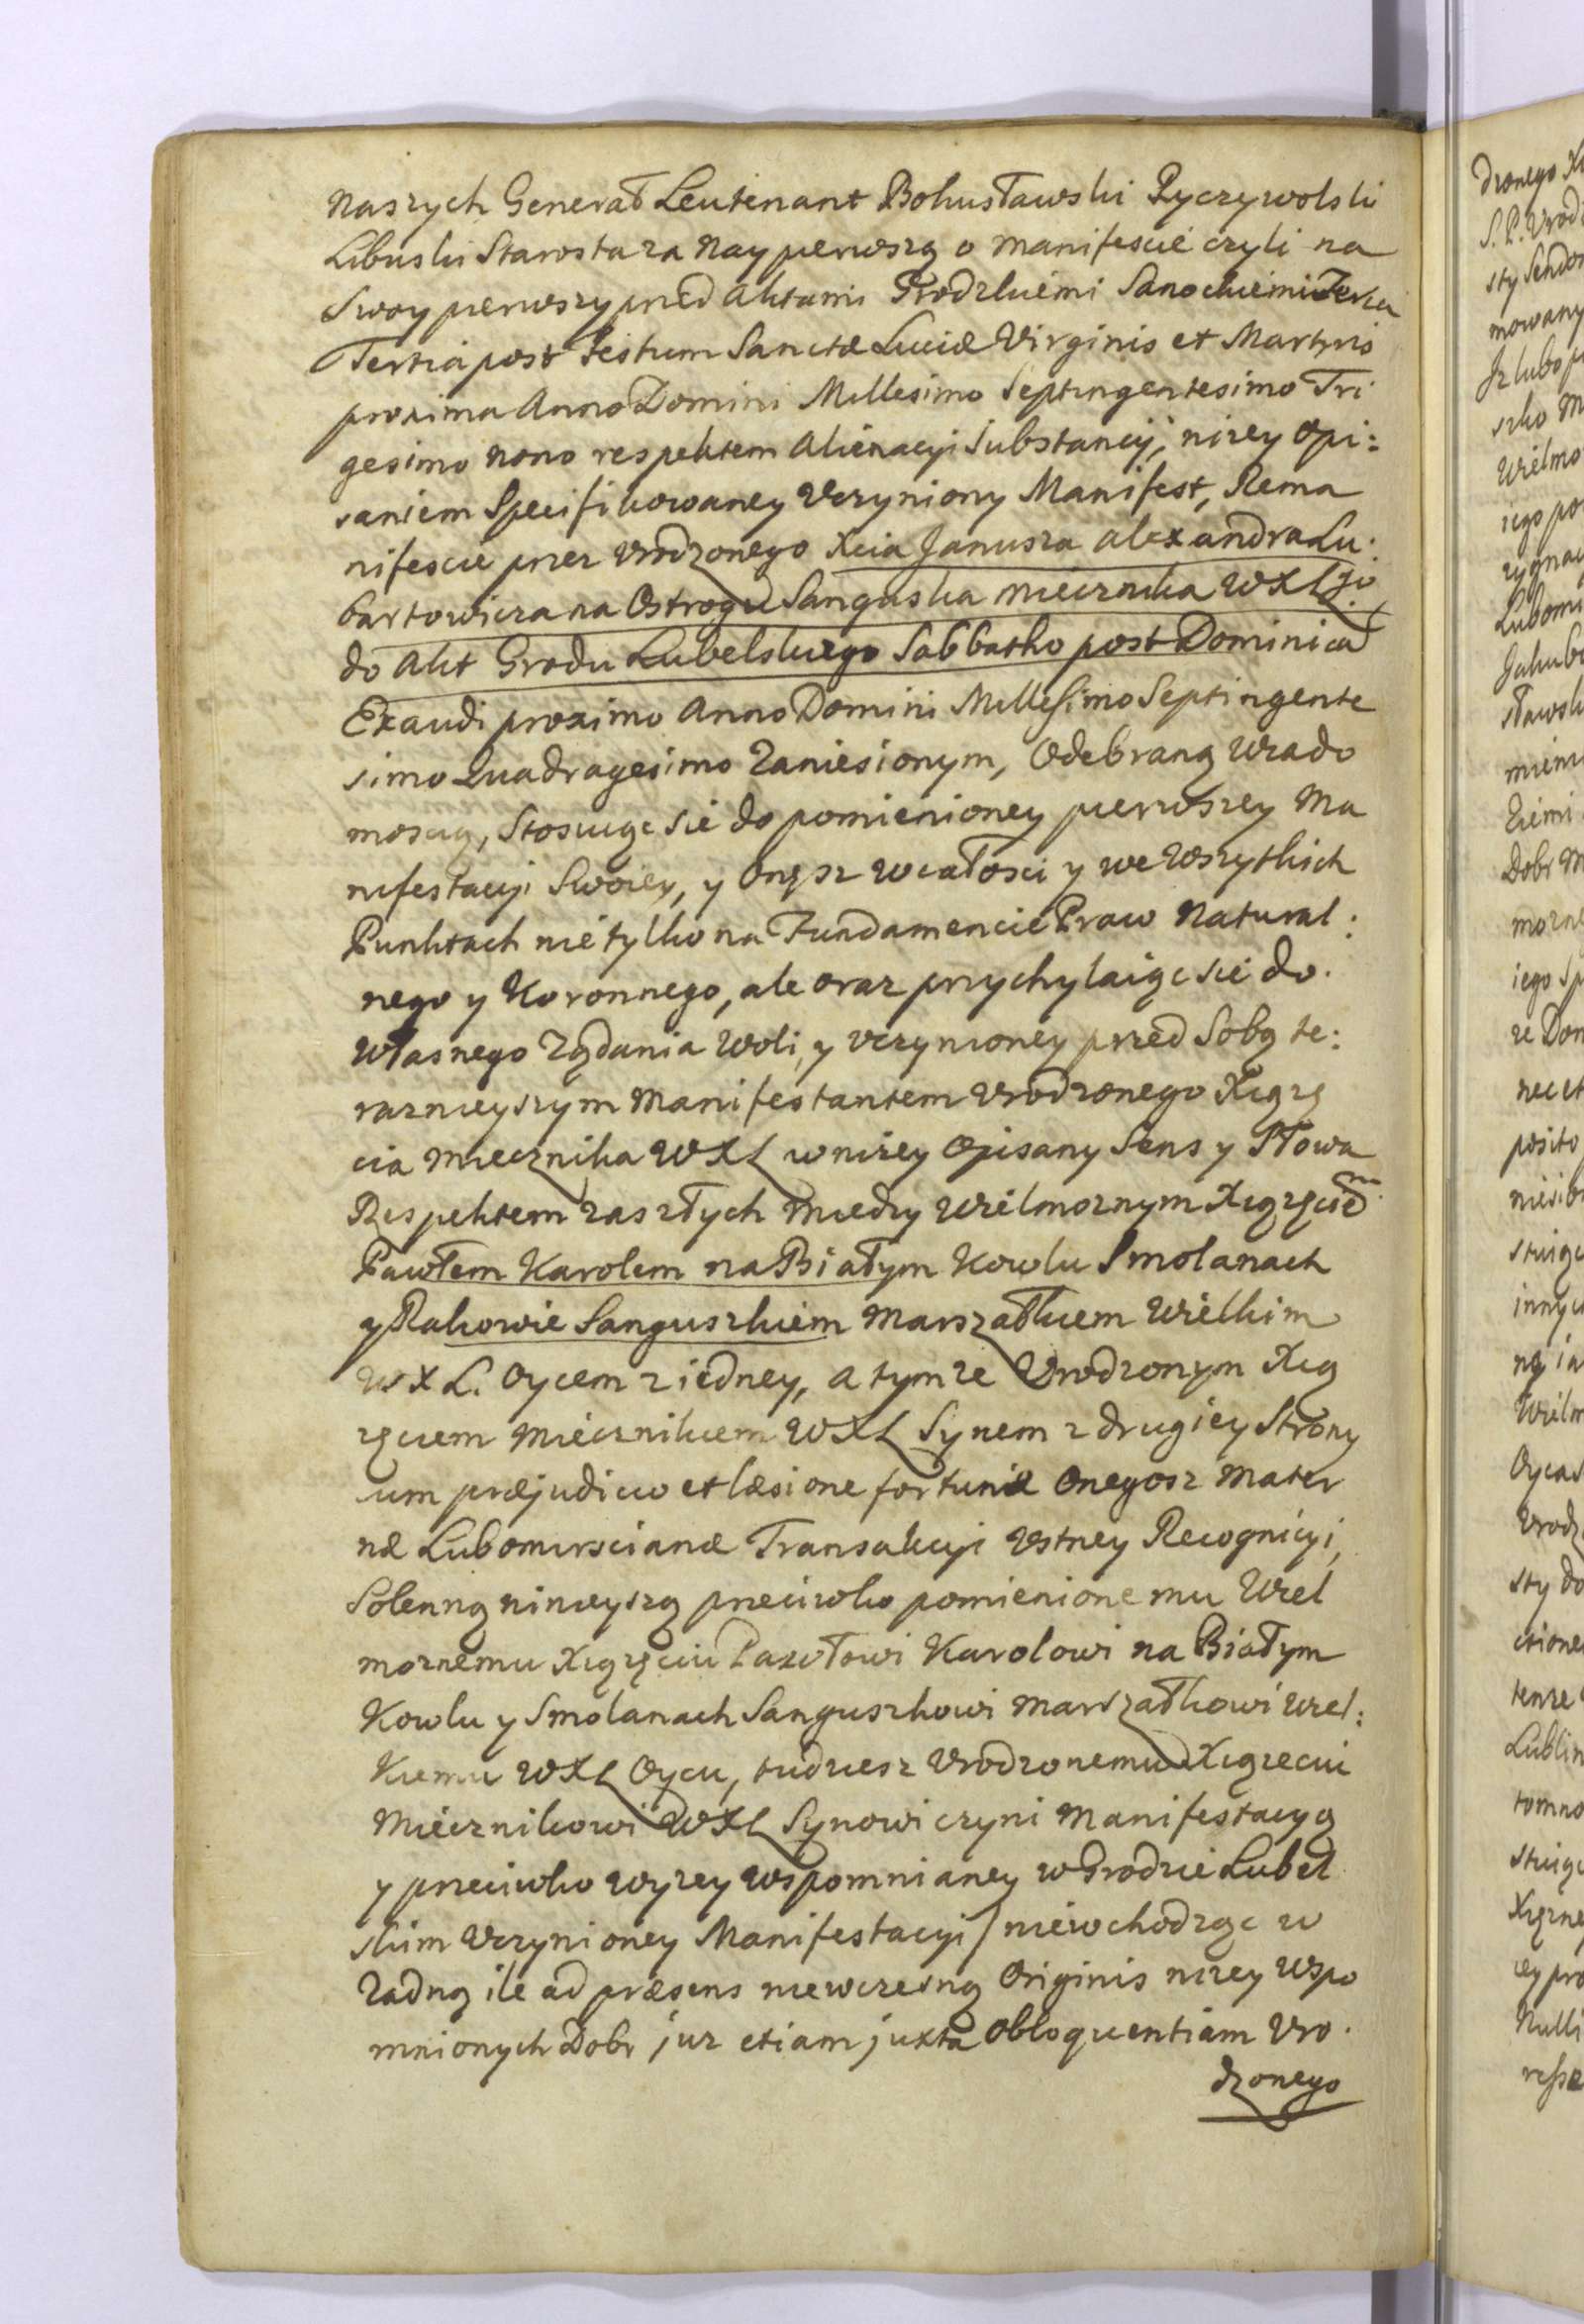 naszych Generał Leutenant Bohusławski Ryczywolski
Libuski Starosta za Naypierwszą o manifescie czyli na
Swoy pierwszy przed Aktami Grodzkiemi Sanockiemi Feria
Tertia post Festum Sanctæ Luciæ Virginis et Martyris
proxima Anno Domini Millesimo Septingentesimo Tri
gesimo nono respektem Alienacyi Substancyi, niżey Opi:
saniem Specifikowaney Vczyniony Manifest, Rema
nifescie przez Vrodzonego Xcia Janusza Alexandra Lu:
bartowicza na Ostrogu Sanguska miecznika WXLgo
do Akt Grodu Lubelskiego Sabbatho post Dominica
Exaudi proximo Anno Domini Millesimo Septingente
simo Quadragesimo Zaniesionym, Odebraną Wiado
moscią, Stosuiąc się do pomienioney pierwszey Ma
nifestacyi Swoiey, y Onęsz w całosci y we Wszytkich
Punktach nie tylko na Fundamencie Praw Natural:
nego y Koronnego, ale oraz przychylaiąc się do
Własnego Żądania Woli, y vczynioney przed Sobą te:
raznieyszym Manifestantem Vrodzonego Xiążę
cia Miecznika WXL w niżey Opisany Sens y Słowa
Respektem zaszłych między Wielmoznym Xiążęciem
Pawłem Karolem na Białym Kowlu Smolanach
y Rakowie Sanguszkiem Marszałkiem Wielkim
WXL. Oycem z iedney, a tymże Vrodzonym Xią
żęciem Miecznikiem WXL Synem z drugiey Strony
cum præjudicio et læsione fortunæ Onegosz Mater
næ Lubomirscianæ Transakcyi Vstney Recognicyi,
Solenną ninieyszą przeciwko pomienionemu Wiel
moznemu Xiążęciu Pawłowi Karolowi na Białym
Kowlu y Smolanach Sanguszkowi Marszałkowi Wiel:
kiemu WXL Oycu, tudziesz Vrodzonemu Xiążeciu
Miecznikowi WXL Synowi czyni Manifestacyą
y przeciwko wyżey Wspomnianey w Grodzie Lubel
skim Vczynioney Manifestacyi / niewchodząc w
Żadną ile ad præsens niewczesną Originis niżey Wspo
mnionych Dobr już etiam juxta Obloquentiam Vro.
dzonego